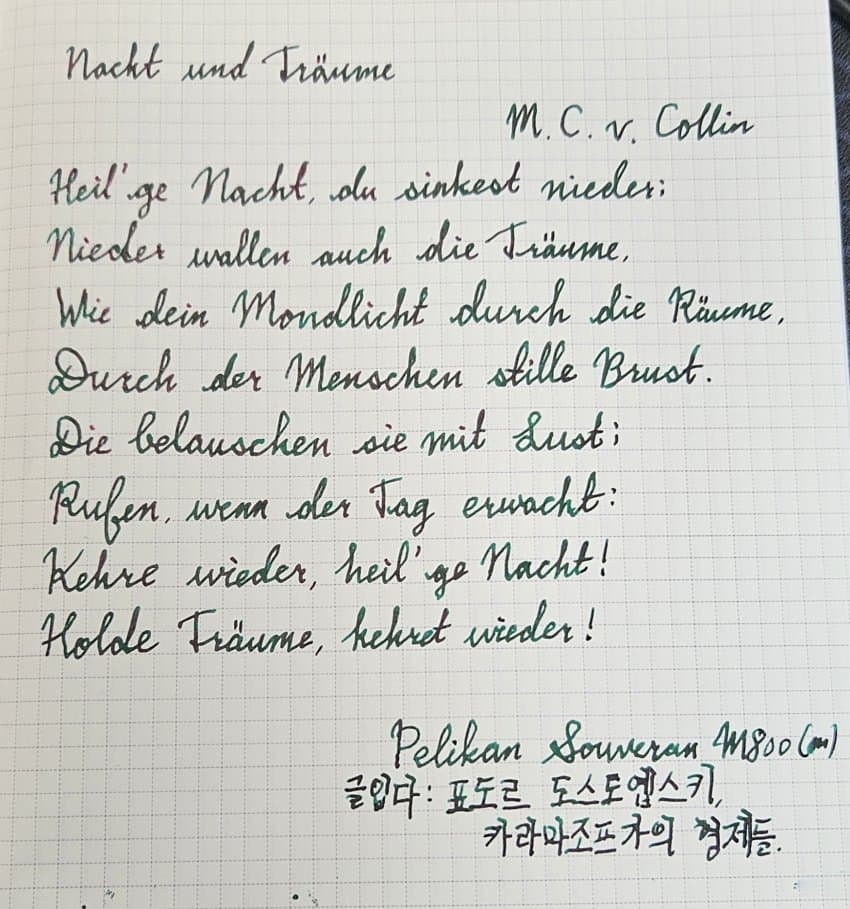 Nacht und Träume
M. C. v. Collin
Heil'ge Nacht, du sinkest nieder;
Nieder wallen auch die Träume,
Wie dein Mondlicht durch die Räume,
Durch der Menschen stille Brust.
Die belauschen sie mit Lust;
Rufen, wenn der Tag erwacht:
Kehre wieder, heil'ge Nacht!
Holde Träume, kehret wieder!
Pelikan Souveran M800 (m)
글입다: 표도르 도스토옙스키,
카라마조프가의 형제들.